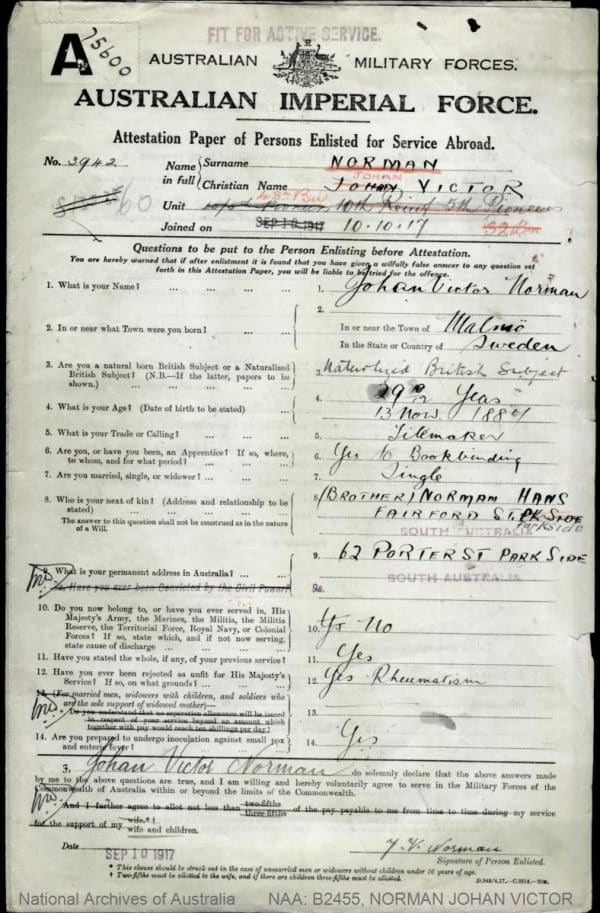 A
75600
FIT FOR ACTIVE SERVICE.
AUSTRALIAN MILITARY FORCES.
AUSTRALIAN IMPERIAL FORCE.
Attestation Paper of Persons Enlisted for Service Abroad.
No. 3942
Name in full
Surname NORMAN
JOHAN
Christian Name JOHN VICTOR
Unit 10th Reinf 5th Pioneers
43rd Bn
60
32 Bn
Joined on SEP 10 1917 10.10.17
Questions to be put to the Person Enlisting before Attestation.
You are hereby warned that if after enlistment it is found that you have given a wilfully false answer to any question set
forth in this Attestation Paper, you will be liable to be tried for the offence.
1. What is your Name? ... ... ... ... 1. Johan Victor Norman
2. In or near what Town were you born? ... ... 2. In or near the Town of Malmö
In the State or Country of Sweden
3. Are you a natural born British Subject or a Naturalized
British Subject? (N.B.—If the latter, papers to be
shown.) ... ... ... ... 3. Naturlized British Subject
4. What is your Age? (Date of birth to be stated) ... 4. 29 Yeas
13 Nov. 1887
5. What is your Trade or Calling? ... ... ... 5. Tilemaker
6. Are you, or have you been, an Apprentice? If so, where,
to whom, and for what period? ... ... ... 6. Yes Bookbinding
7. Are you married, single, or widower? ... ... 7. Single
8. Who is your next of kin? (Address and relationship to be
stated) ... ... ... ... 8 (BROTHER) NORMAN HANS
The answer to this question shall not be construed as in the nature
of a Will.
FAIRFORD ST. PKSIDE
Parkside
SOUTH AUSTRALIA
9. What is your permanent address in Australia? ... ... 9. 62 PORTER ST PARKSIDE
SOUTH AUSTRALIA
9a. Have you ever been Convicted by the Civil Power? 9a.
10. Do you now belong to, or have you ever served in, His
Majesty's Army, the Marines, the Militia, the Militia
Reserve, the Territorial Force, Royal Navy, or Colonial
Forces? If so, state which, and if not now serving,
state cause of discharge ... ... ... 10. No
11. Have you stated the whole, if any, of your previous service? 11. Yes
12. Have you ever been rejected as unfit for His Majesty's
Service? If so, on what grounds? ... ... 12. Yes Rheumatism
13. (For married men, widowers with children, and soldiers who
are the sole support of widowed mother)—
Do you understand that no separation allowance will be issued
in respect of your service beyond an amount which
together with pay would reach ten shillings per day? 13.
14. Are you prepared to undergo inoculation against small pox
and enteric fever? 14. Yes
I, Johan Victor Norman do solemnly declare that the above answers made
by me to the above questions are true, and I am willing and hereby voluntarily agree to serve in the Military Forces of the
Commonwealth of Australia within or beyond the limits of the Commonwealth.
And I further agree to allot not less than two-fifths
three-fifths of the pay payable to me from time to time during my service
for the support of my wife.*†
wife and children.
Date SEP 10 1917
J. V. Norman
Signature of Person Enlisted.
* This clause should be struck out in the case of unmarried men or widowers without children under 16 years of age.
† Two-fifths must be allotted to the wife, and if there are children three-fifths must be allotted.
National Archives of Australia NAA: B2455, NORMAN JOHAN VICTOR